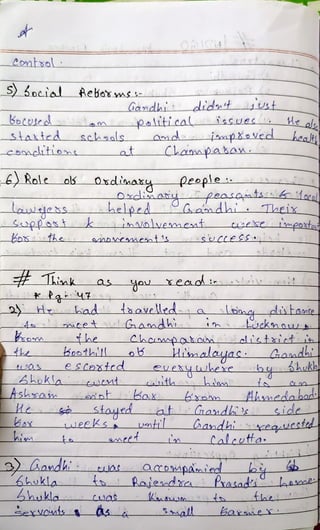 control.
5) Social Reforms :-
Gandhi didn't just
focused on political issues. He also
started schools and improved health
conditions at Champaran.
6) Role of Ordinary people :-
Ordinary peasants & local
lawyers helped Gandhi. Their
support & involvement were important
for the movement's success.
# Think as you read :-
* Pg:- 47
2) He had travelled a long distance
to meet Gandhi in Lucknow
from the Champaran district in
the foothill of Himalayas. Gandhi
was escorted everywhere by Shukla
Shukla went with him to an
Ashram not far from Ahmedabad.
He stayed at Gandhi's side
for weeks, until Gandhi requested
him to meet in Calcutta.
3) Gandhi was accompanied by
Shukla to Rajendra Prasad's home
Shukla was known to the
servants as a small farmer.